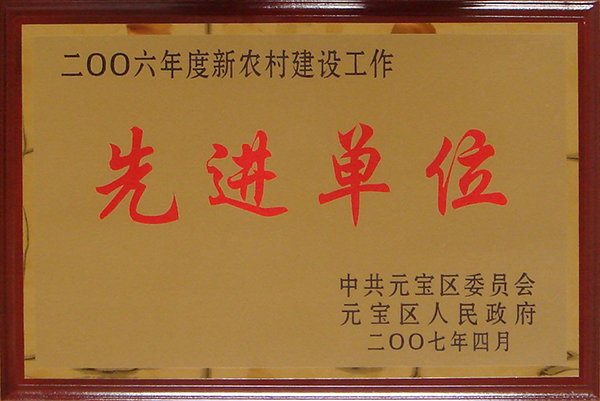 二OO六年度新农村建设工作
先进单位
中共元宝区委员会
元宝区人民政府
二OO七年四月